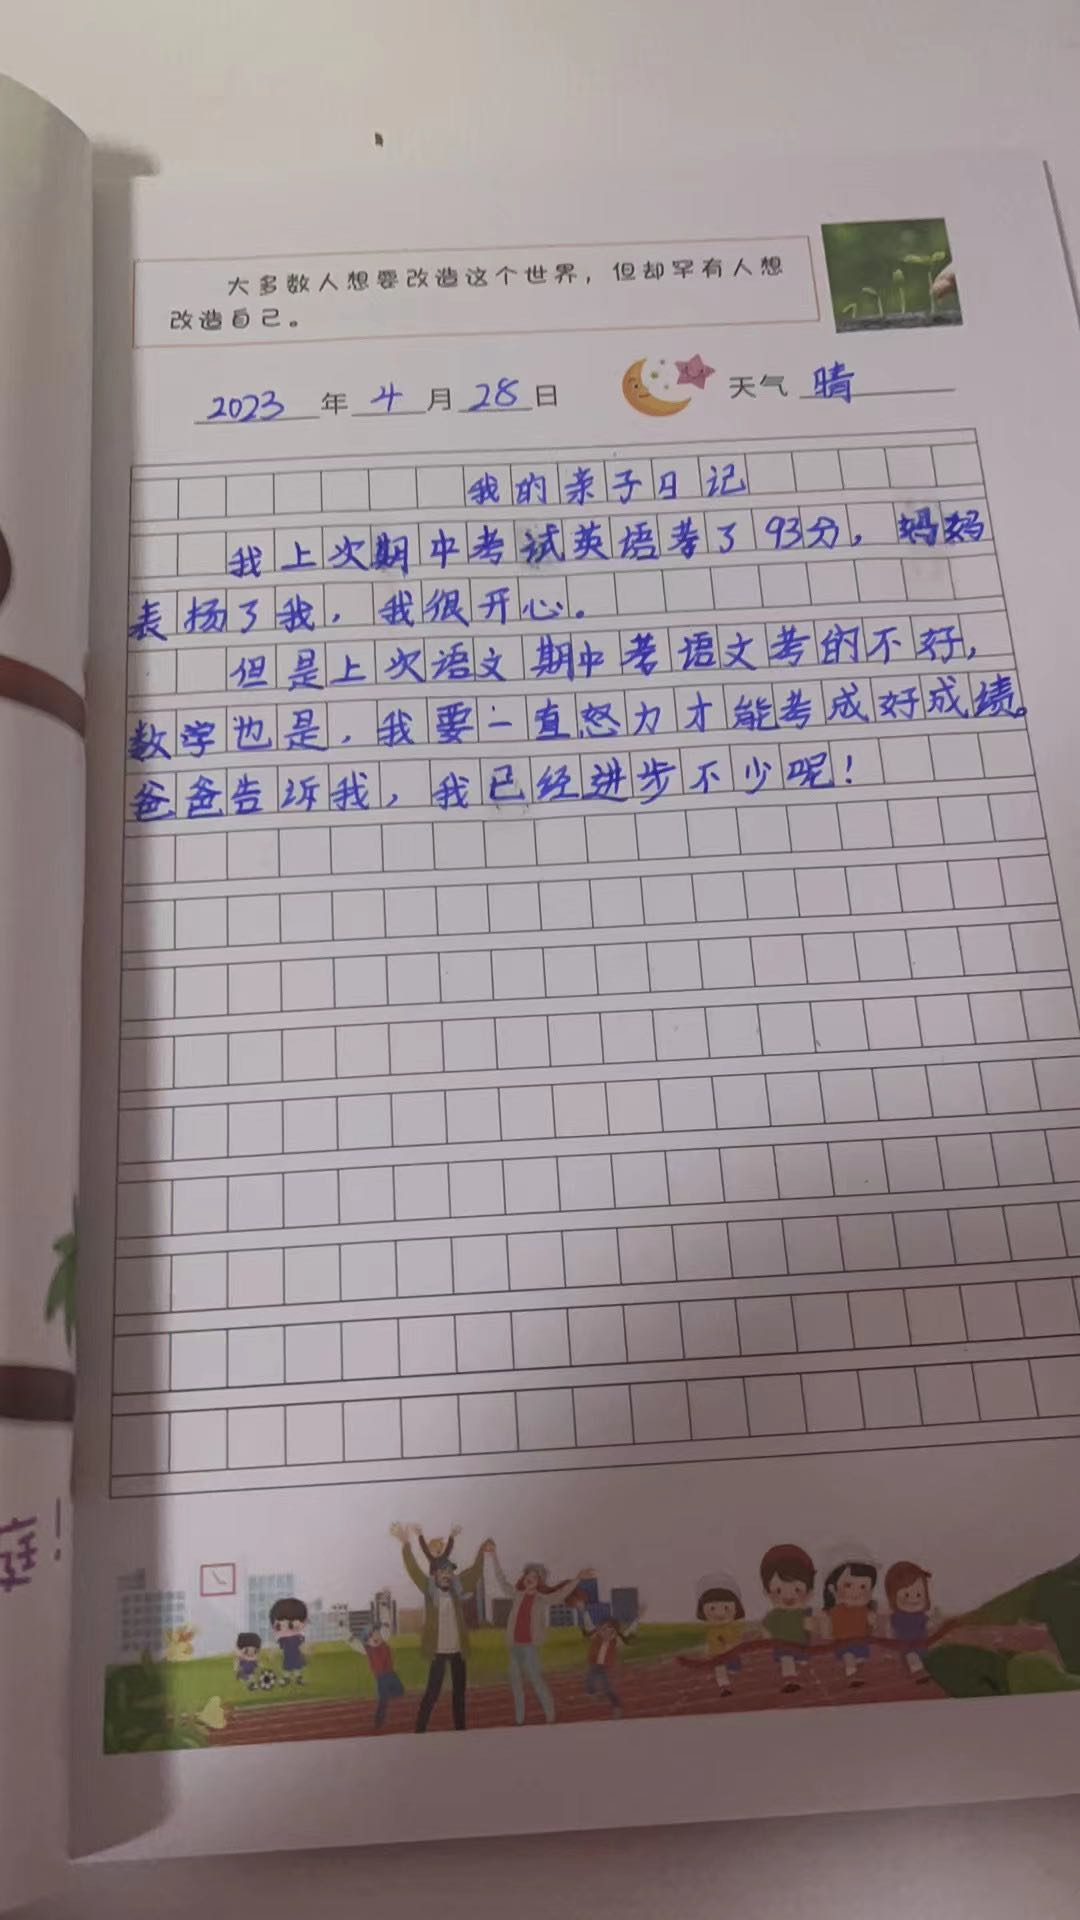 大多数人想要改造这个世界，但却罕有人想
改造自己。
2023 年 4 月 28 日 天气 晴
我的亲子日记
我上次期中考试英语考了93分，妈妈
表扬了我，我很开心。
但是上次语文期中考语文考的不好，
数学也是，我要一直努力才能考成好成绩。
爸爸告诉我，我已经进步不少呢！
庭！